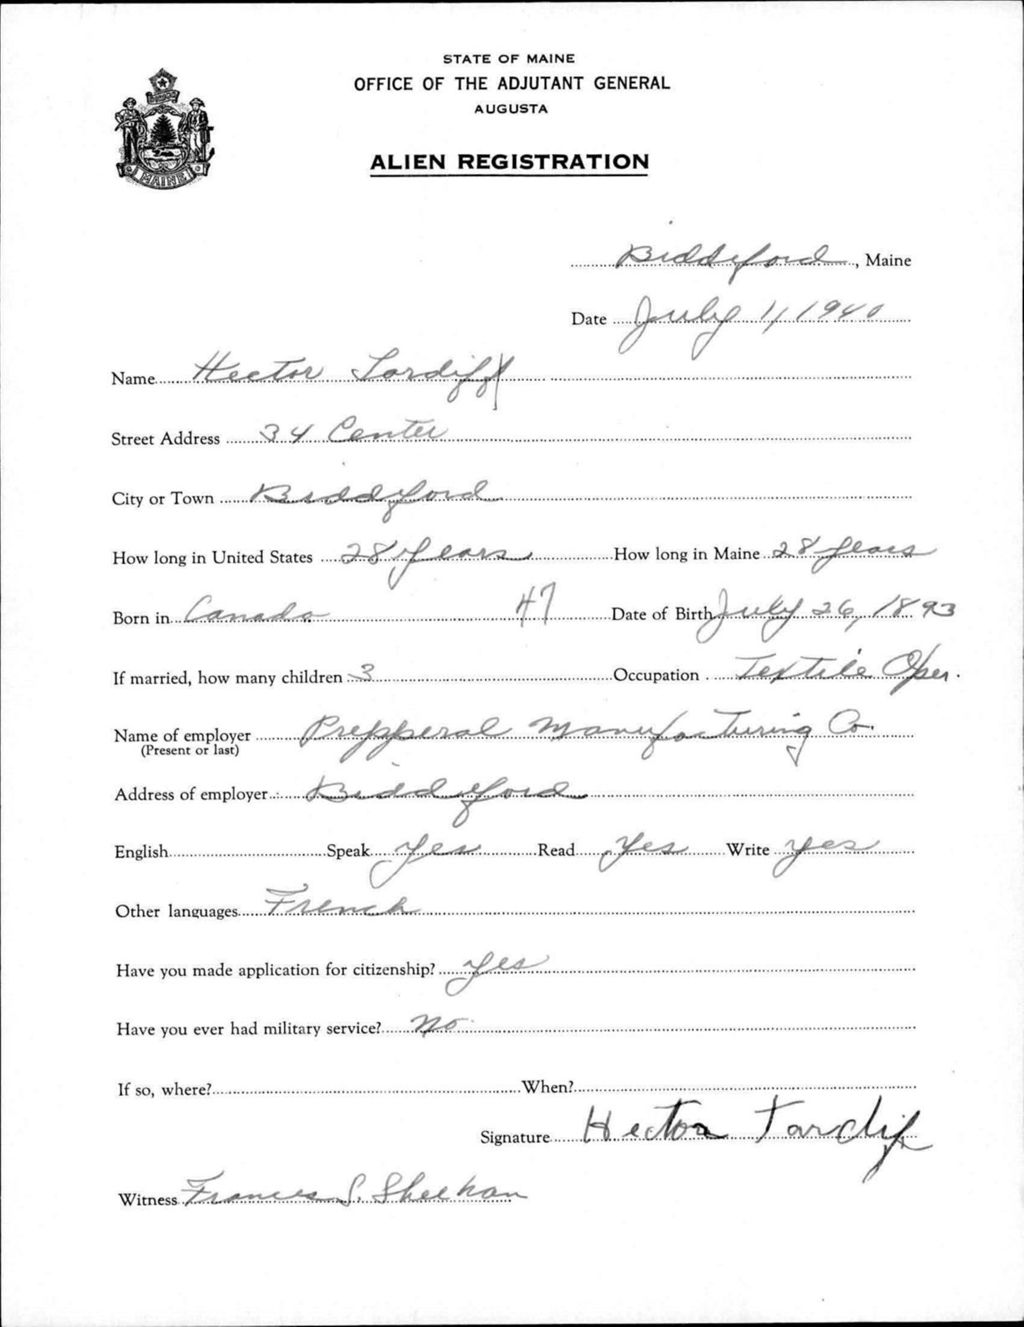 STATE OF MAINE
OFFICE OF THE ADJUTANT GENERAL
AUGUSTA
ALIEN REGISTRATION
MAINE
Biddeford, Maine
Date July 1, 1940
Name Hector Tardiff
Street Address 34 Center
City or Town Biddeford
How long in United States 28 years How long in Maine 28 years
Born in Canada 47 Date of Birth July 26, 1893
If married, how many children 3 Occupation Textile Oper.
Name of employer Prepperal Manufacturing Co.
(Present or last)
Address of employer Biddeford
English Speak Yes Read Yes Write Yes
Other languages French
Have you made application for citizenship? Yes
Have you ever had military service? No
If so, where? When?
Signature Hector Tardif
Witness Frances S. Sheehan